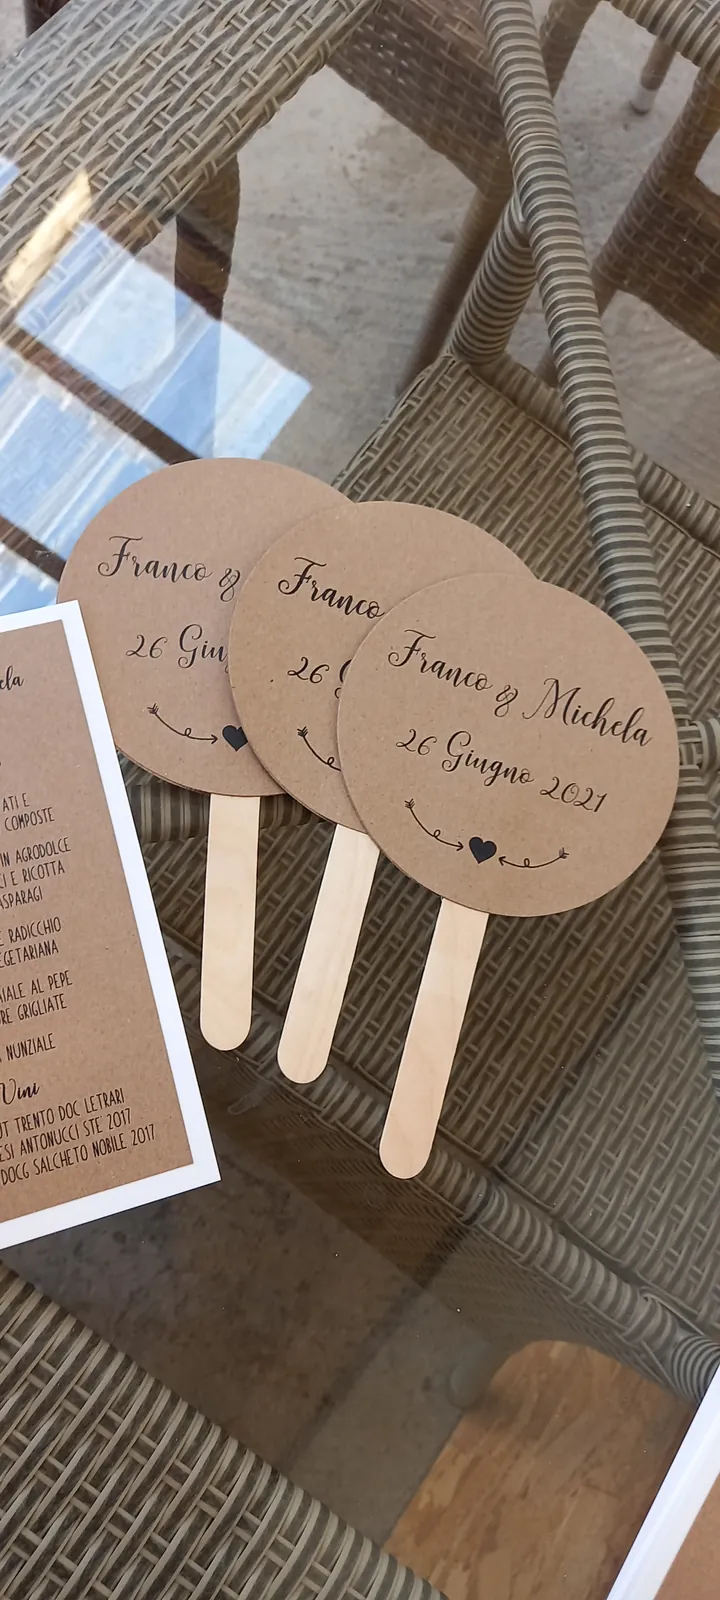 Franco &
26
Franco
26
Franco & Michela
26 Giugno 2021
ATI E
COMPOSTE
IN AGRODOLCE
CI E RICOTTA
ASPARAGI
E RADICCHIO
EGETARIANA
AIALE AL PEPE
RE GRIGLIATE
NUNZIALE
Vini
UT TRENTO DOC LETRARI
ESI ANTONUCCI STE 2017
DOCG SALCHETO NOBILE 2017